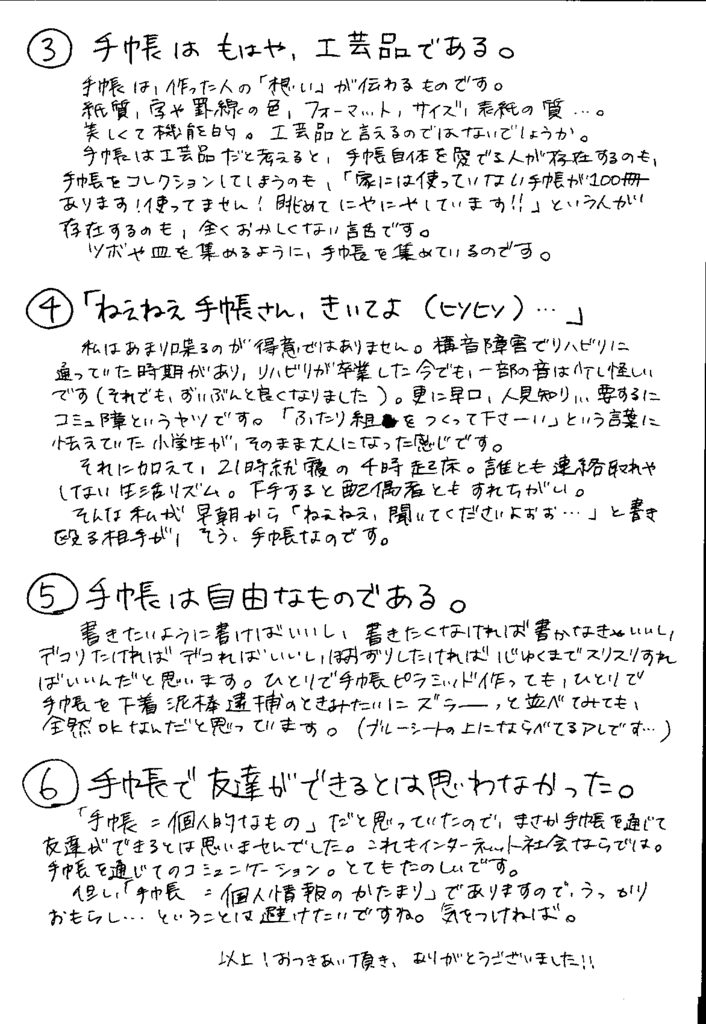 ③ 手帳は もはや、工芸品である。
手帳は、作った人の「想い」が伝わるものです。
紙質、字や罫線の色、フォーマット、サイズ、表紙の質…。
美しくて機能的。工芸品と言えるのではないでしょうか。
手帳は工芸品だと考えると、手帳自体を愛でる人が存在するのも、
手帳をコレクションしてしまうのも、「家には使っていない手帳が100冊
あります!使ってません!眺めてにやにやしています!!」という人が
存在するのも、全くおかしくない話です。
ツボや皿を集めるように、手帳を集めているのです。
④「ねえねえ手帳さん、きいてよ(ヒソヒソ)…」
私はあまり喋るのが得意ではありません。構音障害でリハビリに
通っていた時期があり、リハビリが卒業した今でも、一部の音は少し怪しい
です(それでも、ずいぶんと良くなりました)。更に早口、人見知り、要するに
コミュ障というヤツです。「ふたり組をつくって下さーい」という言葉に
怯えていた小学生が、そのまま大人になった感じです。
それに加えて、21時就寝の4時起床。誰とも連絡取れや
しない生活リズム。下手すると配偶者ともすれちがい。
そんな私が早朝から「ねえねえ、聞いてくださいよぉぉ…」と書き
殴る相手が、そう、手帳なのです。
⑤ 手帳は自由なものである。
書きたいように書けばいいし、書きたくなければ書かなきゃいいし、
デコりたければデコればいいし、ほおずりしたければ心ゆくまでスリスリすれ
ばいいんだと思います。ひとりで手帳ピラミッド作っても、ひとりで
手帳を下着泥棒逮捕のときみたいにズラーーっと並べてみても、
全然OKなんだと思っています。(ブルーシートの上にならべてるアレです…)
⑥ 手帳で友達ができるとは思わなかった。
「手帳=個人的なもの」だと思っていたので、まさか手帳を通じて
友達ができるとは思いませんでした。これもインターネット社会ならでは。
手帳を通じてのコミュニケーション。とてもたのしいです。
但し、「手帳=個人情報のかたまり」でありますので、うっかり
おもらし…ということは避けたいですね。気をつけねば。
以上!おつきあい頂き、ありがとうございました!!